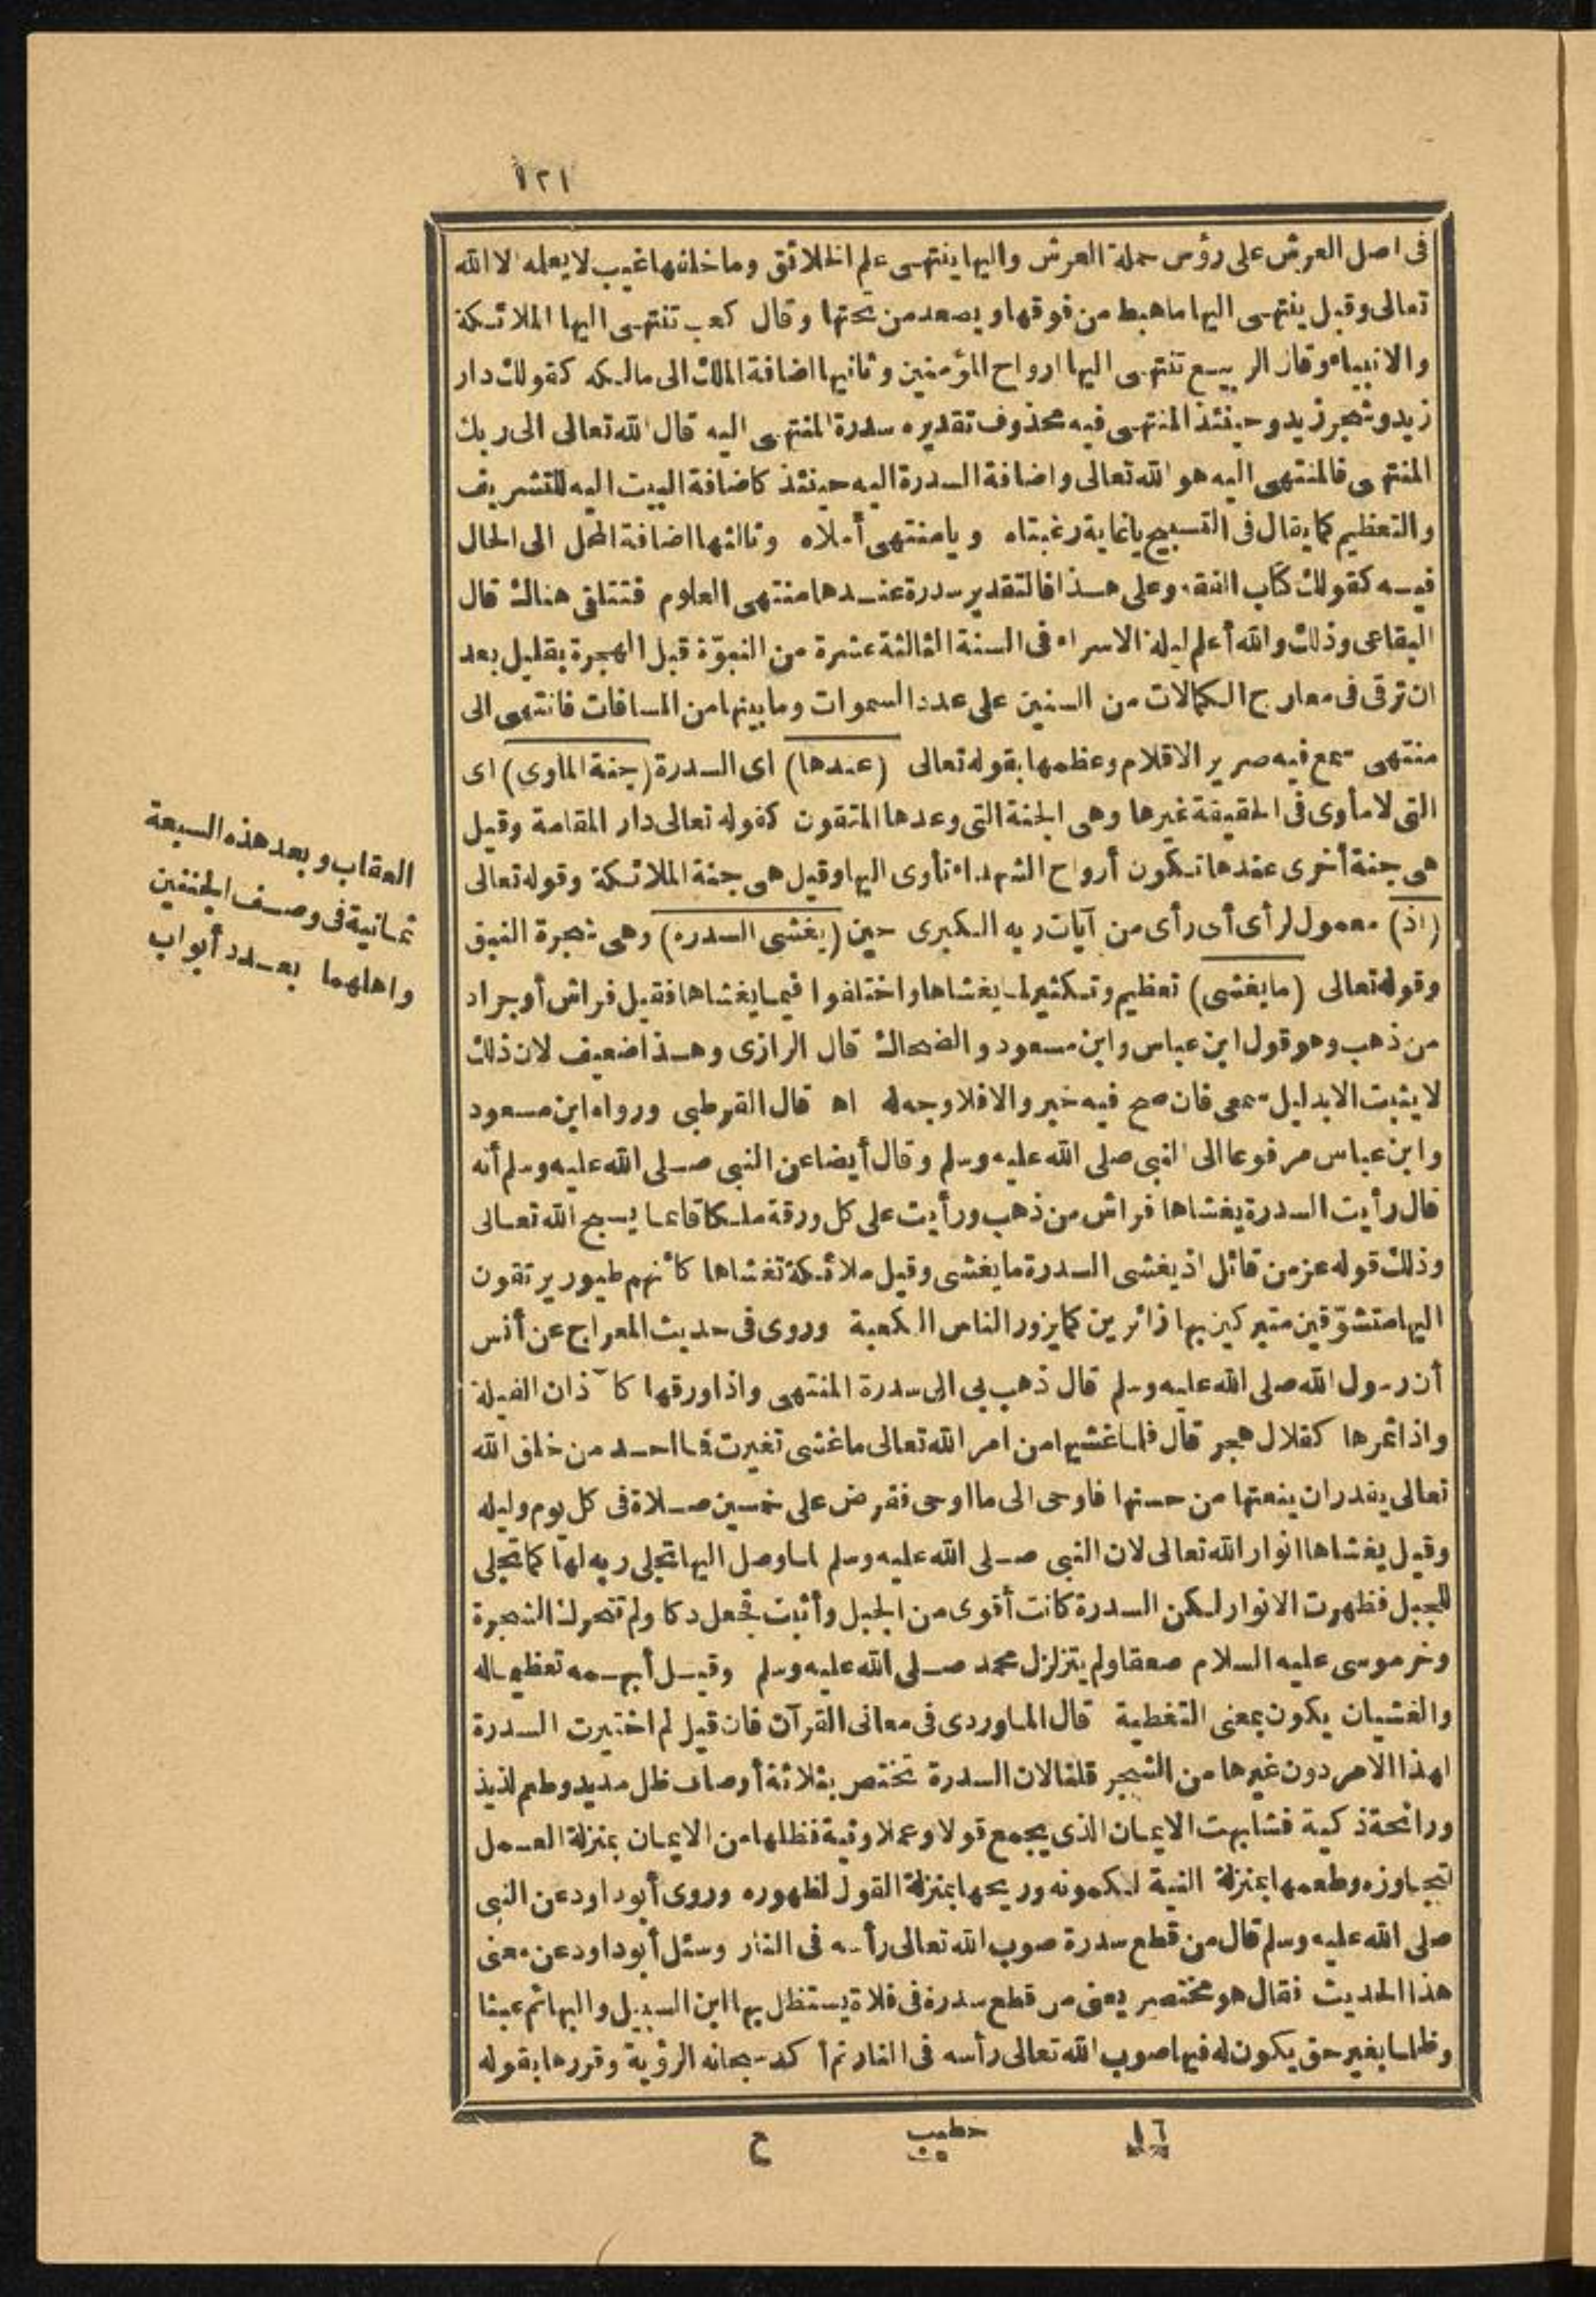 ١٢١
فى اصل العرش على رؤس حملة العرش واليها ينتهى علم الخلائق وما خلفها غيب لا يعلمه الا الله
تعالى وقيل ينتهى اليها ما هبط من فوقها ويصعد من تحتها وقال كعب تنتهى اليها الملائكة
والانبياء وقال الربيع تنتهى اليها ارواح المؤمنين وثانيها اضافة الملك الى مالكه كقولك دار
زيد وشجر زيد وحينئذ المنتهى فيه محذوف تقديره سدرة المنتهى اليه قال الله تعالى الى ربك
المنتهى فالمنتهى اليه هو الله تعالى واضافة السدرة اليه حينئذ كاضافة البيت اليه للتشريف
والتعظيم كما يقال فى التسبيح ياغاية رغبتاه ويا منتهى أملاه وثالثها اضافة المحل الى الحال
فيه كقولك كتاب الفقه وعلى هذا فالتقدير سدرة عندها منتهى العلوم فتتلقى هنالك قال
البقاعى وذلك والله أعلم ليلة الاسراء فى السنة الثالثة عشرة من النبوّة قبل الهجرة بقليل بعد
ان ترقى فى معارج الكمالات من السنين على عدد السموات وما بينها من المسافات فانتهى الى
منتهى سمع فيه صرير الاقلام وعظمها بقوله تعالى (عندها) اى السدرة (جنة الماوى) اى
التى لا مأوى فى الحقيقة غيرها وهى الجنة التى وعدها المتقون كقوله تعالى دار المقامة وقيل
هى جنة أخرى عندها تكون أرواح الشهداء تأوى اليها وقيل هى جنة الملائكة وقوله تعالى
(اذ) معمول لرأى أى رأى من آيات ربه الكبرى حين (يغشى السدره) وهى شجرة النبق
وقوله تعالى (ما يغشى) تعظيم وتكثير لما يغشاها واختلفوا فيما يغشاها فقيل فراش أو جراد
من ذهب وهو قول ابن عباس وابن مسعود والضحاك قال الرازى وهذا ضعيف لان ذلك
لا يثبت الا بدليل سمعى فان صح فيه خبر والا فلا وجه له اه قال القرطبى ورواه ابن مسعود
وابن عباس مرفوعا الى النبى صلى الله عليه وسلم وقال أيضا عن النبى صلى الله عليه وسلم أنه
قال رأيت السدرة يغشاها فراش من ذهب ورأيت على كل ورقة ملكا قائما يسبح الله تعالى
وذلك قوله عز من قائل اذ يغشى السدرة ما يغشى وقيل ملائكة تغشاها كأنهم طيور يرتقون
اليها متشوّقين متبركين بها زائرين كما يزور الناس الكعبة وروى فى حديث المعراج عن أنس
أن رسول الله صلى الله عليه وسلم قال ذهب بى الى سدرة المنتهى واذا ورقها كآذان الفيلة
واذا ثمرها كقلال هجر قال فلما غشيها من امر الله تعالى ما غشى تغيرت فما احد من خلق الله
تعالى يقدر ان ينعتها من حسنها فاوحى الى ما اوحى ففرض على خمسين صلاة فى كل يوم وليله
وقيل يغشاها انوار الله تعالى لان النبى صلى الله عليه وسلم لما وصل اليها تجلى ربه لها كما تجلى
للجبل فظهرت الانوار لكن السدرة كانت أقوى من الجبل وأثبت فجعل دكا ولم تتحرك الشجرة
وخر موسى عليه السلام صعقا ولم يتزلزل محمد صلى الله عليه وسلم وقيل أبهمه تعظيما له
والغشيان يكون بمعنى التغطية قال الماوردى فى معانى القرآن فان قيل لم اختيرت السدرة
لهذا الامر دون غيرها من الشجر قلنا لان السدرة تختص بثلاثة أوصاف ظل مديد وطعم لذيذ
ورائحة ذكية فشابهت الايمان الذى يجمع قولا وعملا ونية فظلها من الايمان بمنزلة العمل
لتجاوزه وطعمها بمنزلة النية لكمونه وريحها بمنزلة القول لظهوره وروى أبو داود عن النبى
صلى الله عليه وسلم قال من قطع سدرة صوب الله تعالى رأسه فى النار وسئل أبو داود عن معنى
هذا الحديث فقال هو مختصر يعنى من قطع سدرة فى فلاة يستظل بها ابن السبيل والبهائم عبثا
وظلما بغير حق يكون له فيها صوب الله تعالى رأسه فى النار ثم أكد سبحانه الرؤية وقررها بقوله
العقاب وبعد هذه السبعة
ثمانية فى وصف الجنتين
واهلهما بعدد أبواب
١٦ خطيب ح